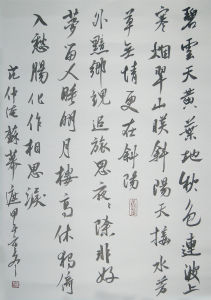 碧雲天黄葉地秋色連波上
寒烟翠山映斜陽天接水芳
草無情更在斜陽
外黯鄉魂追旅思夜夜除非好
夢留人睡明月樓高休獨倚
入愁腸化作相思淚
范仲淹蘇幕遮甲午